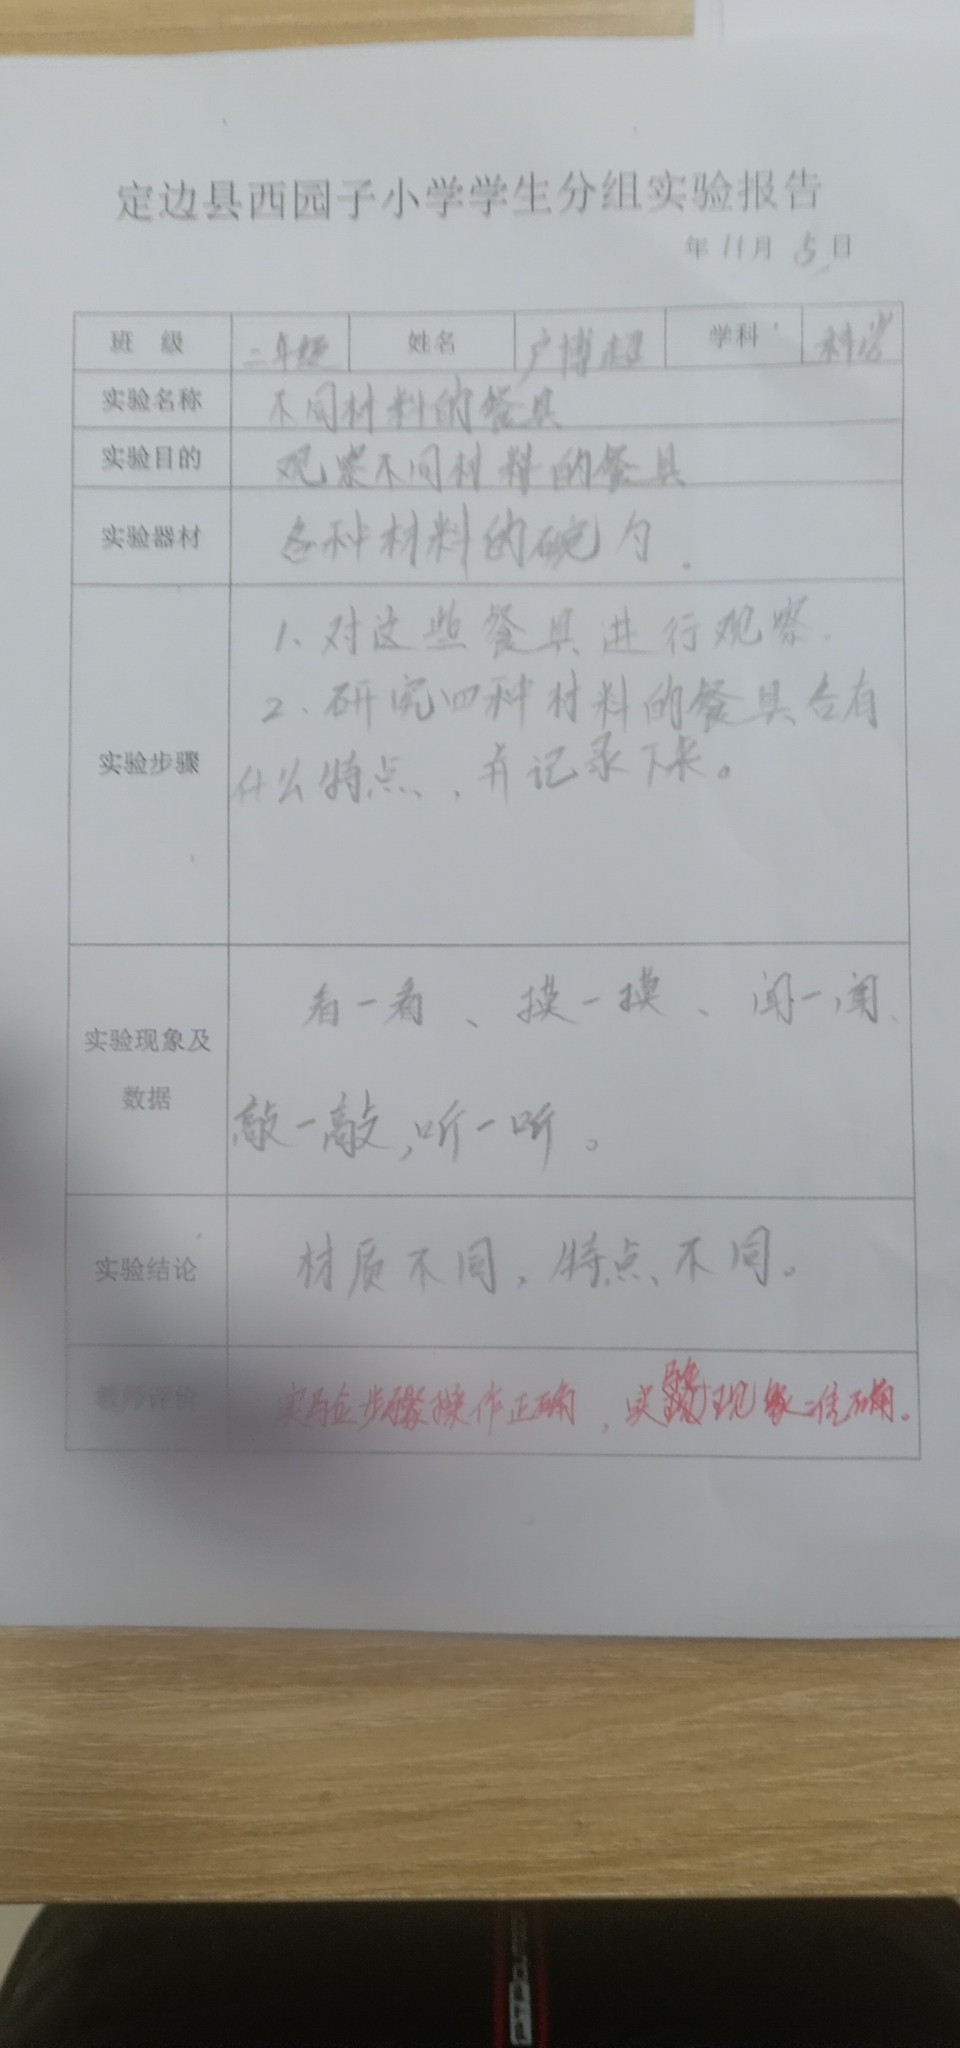 定边县西园子小学学生分组实验报告
年 11月 5日
班 级 二年级 姓名 户博超 学科 科学
实验名称 不同材料的餐具
实验目的 观察不同材料的餐具
实验器材 各种材料的碗勺.
实验步骤
1、对这些餐具进行观察.
2、研究四种材料的餐具各有
什么特点、并记录下来。
实验现象及
数据
看一看、摸一摸、闻一闻、
敲一敲,听一听。
实验结论 材质不同,特点不同。
教师评价 实验步骤操作正确,实验现象准确。